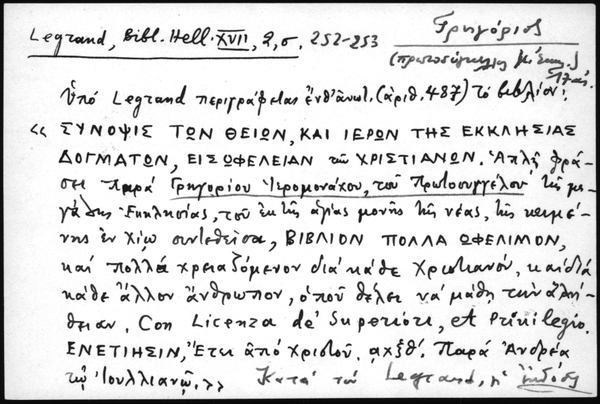 Legrand, Bibl. Hell. XVII, 2, σ. 252-253 Γρηγόριος
(πρωτοσύγκελλος Μ. Εκκλ.)
17 αἰ.
Ὑπό Legrand περιγράφεται ἐνθ' ἀνωτ. (ἀριθ. 487) τό βιβλίον:
« ΣΥΝΟΨΙΣ ΤΩΝ ΘΕΙΩΝ, ΚΑΙ ΙΕΡΩΝ ΤΗΣ ΕΚΚΛΗΣΙΑΣ
ΔΟΓΜΑΤΩΝ, ΕΙΣ ΩΦΕΛΕΙΑΝ τῶν ΧΡΙΣΤΙΑΝΩΝ. Ἁπλῇ φρά-
σει παρά Γρηγορίου Ἱερομονάχου, τοῦ Πρωτοσυγγέλου τῆς με-
γάλης Ἐκκλησίας, τοῦ ἐκ τῆς ἁγίας μονῆς τῆς νέας, τῆς κειμέ-
νης ἐν Χίῳ συντεθεῖσα, ΒΙΒΛΙΟΝ ΠΟΛΛΑ ΩΦΕΛΙΜΟΝ,
καί πολλά χρειαζόμενον διά κάθε Χριστιανόν, καί διά
κάθε ἄλλον ἄνθρωπον, ὁποῦ θέλει νά μάθῃ τήν ἀλή-
θειαν. Con Licenza de' Superiori, et Privilegio.
ΕΝΕΤΙΗΣΙΝ, Ἔτει ἀπό Χριστοῦ. αχξθ'. Παρά Ἀνδρέα
τῷ Ἰουλλιανῷ. » Κατά τόν Legrand, ἡ ἔκδοση